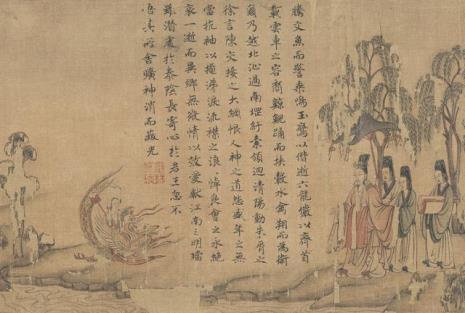 騰文魚而警乘鳴玉鸞以偕逝六龍儼以齊首
載雲車之容裔鯨鯢踊而挾轂水禽翔而為衛
爾乃越北沚過南堽紆素領迴清陽動朱唇以
徐言陳交接之大綱恨人神之道殊怨盛年之無
當抗袖以掩涕淚流襟之浪浪悼良會之永絕
哀一逝而異鄉無微情以效愛獻江南之明璫
雖潛處於泰陰長寄心於君王忽不
悟其所舍曠神消而蔽光